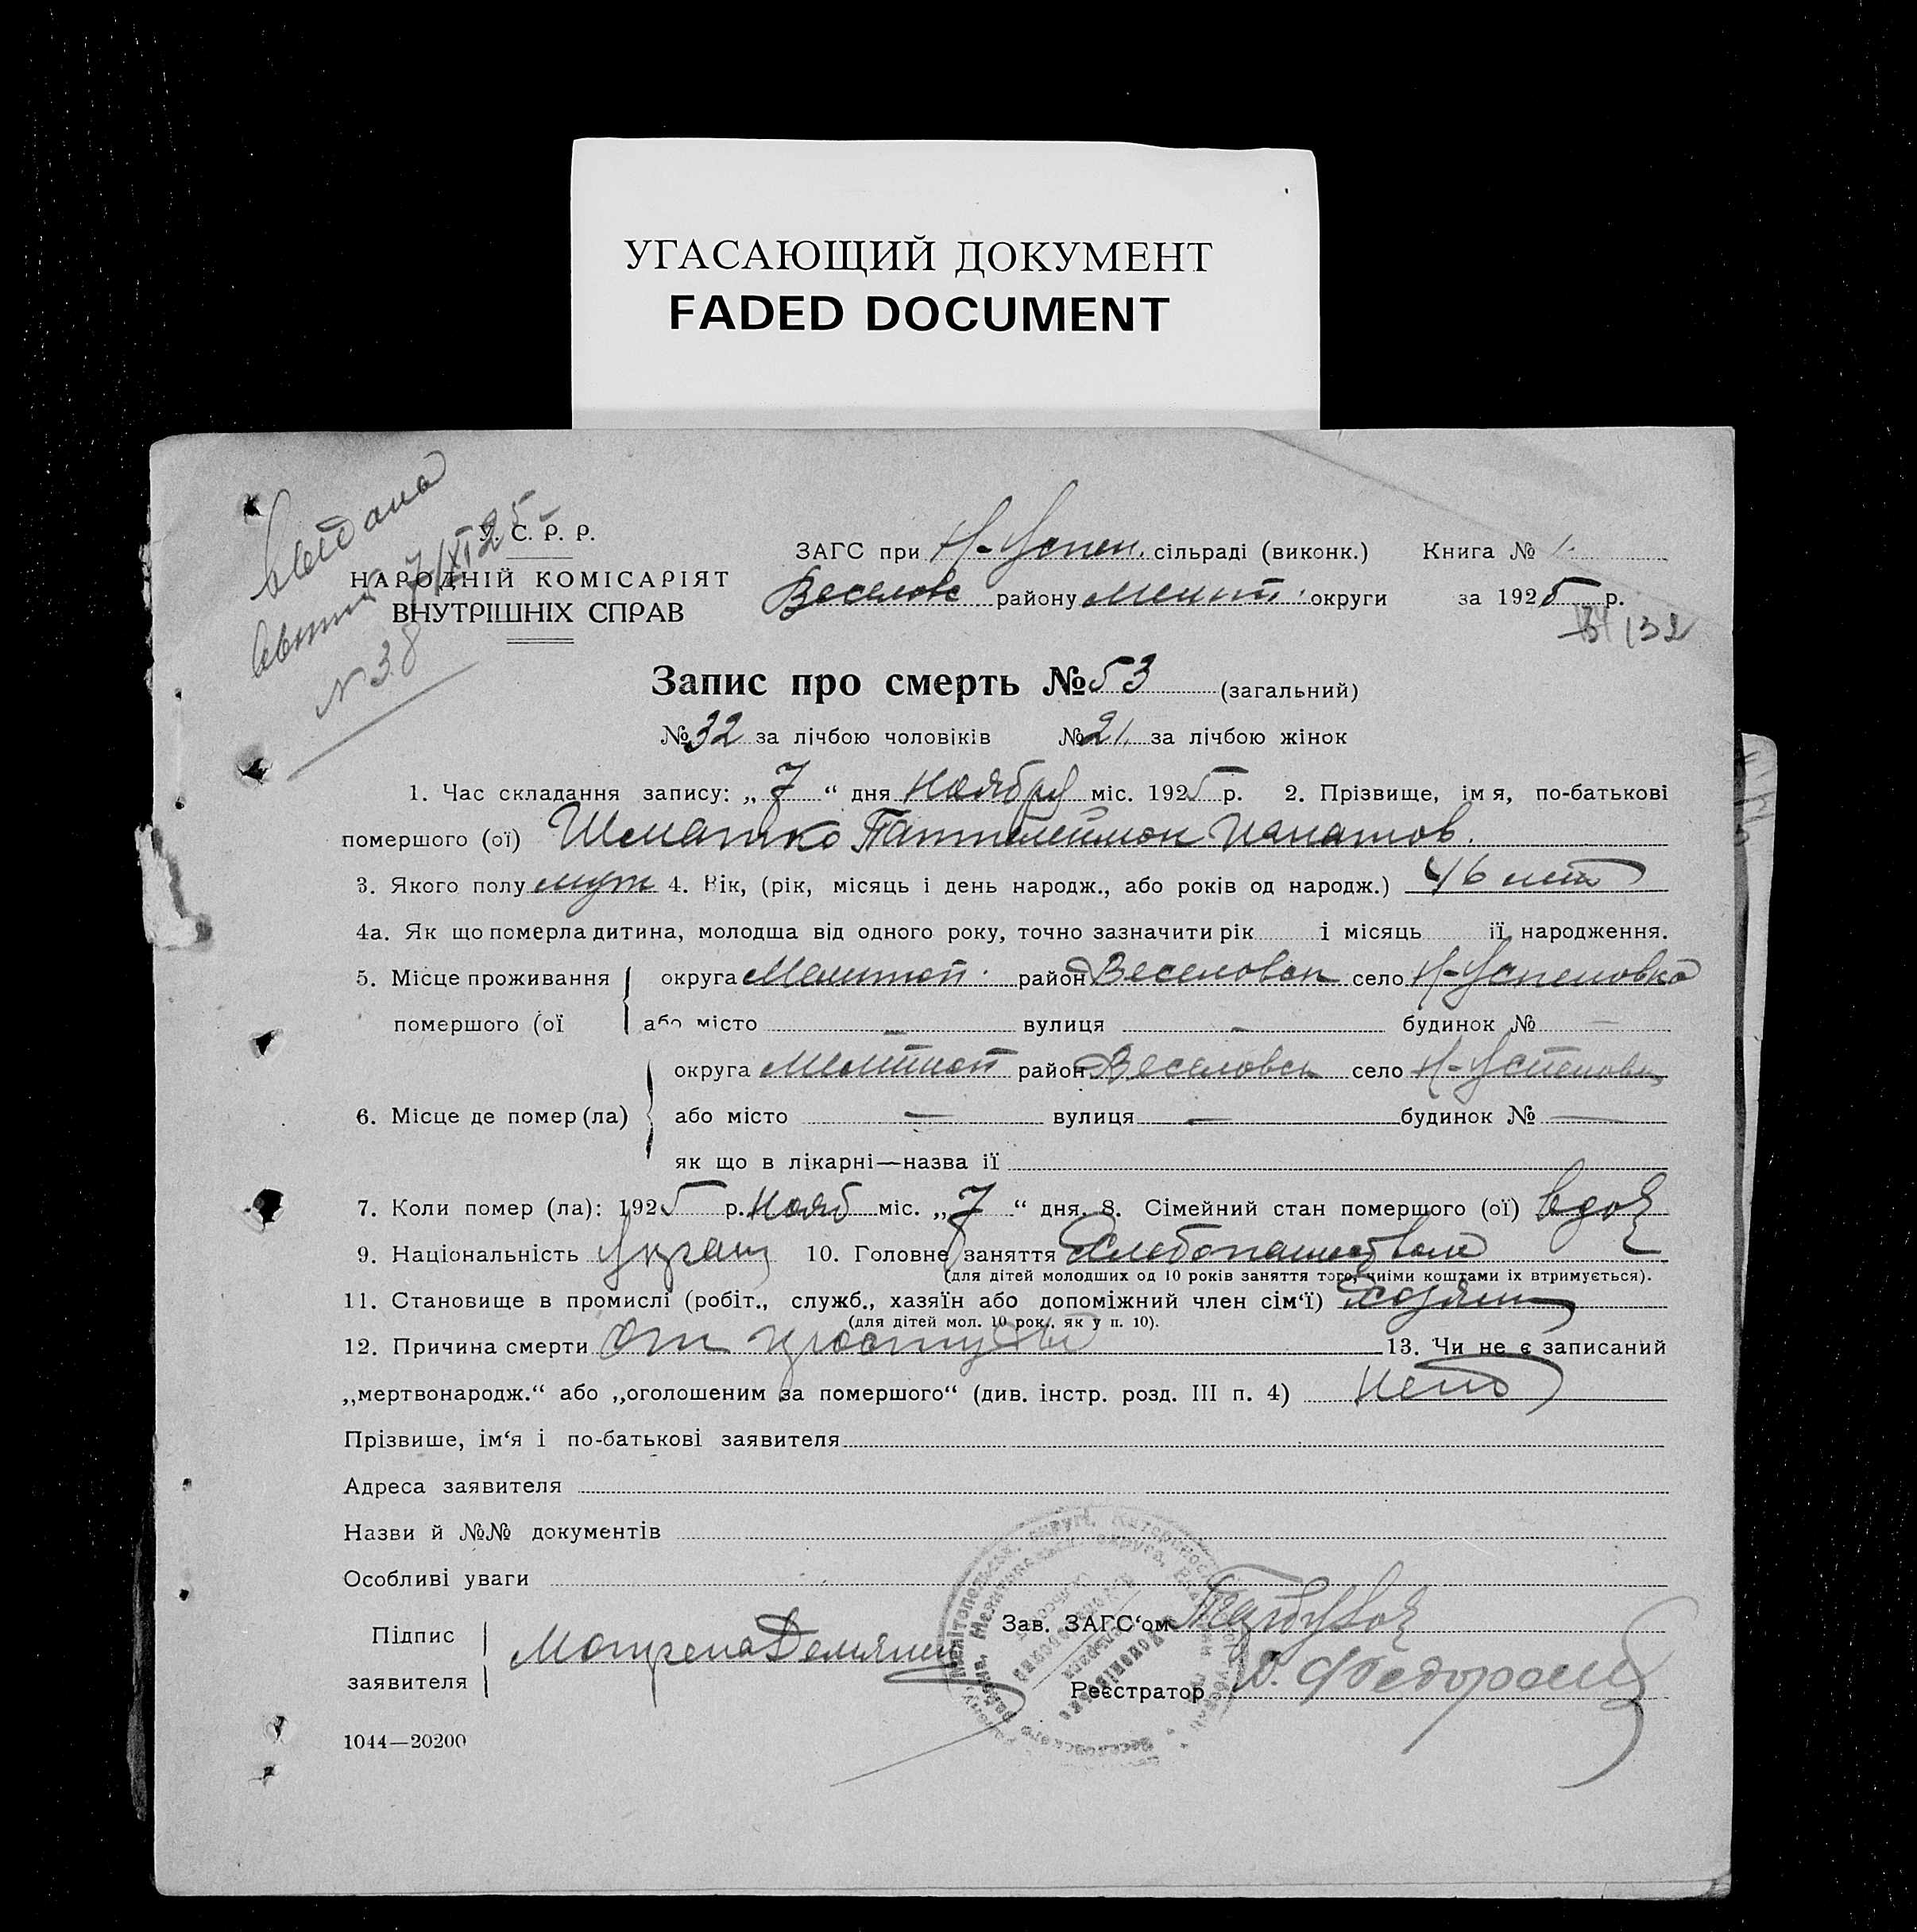 УГАСАЮЩИЙ ДОКУМЕНТ
FADED DOCUMENT
У. С. Р. Р.
НАРОДНІЙ КОМІСАРІЯТ
ВНУТРІШНІХ СПРАВ
Видана
7/XI 25
№ 38
ЗАГС при Н-Успен. сільраді (виконк.) Книга № 1.
Веселовс району Мелит. округи за 1925 р.
132
Запис про смерть № 53 (загальний)
№ 32 за лічбою чоловіків № 21 за лічбою жінок
1. Час складання запису: „7“ дня Ноября міс. 1925 р. 2. Прізвище, імя, по-батькові
помершого (ої) Шематко Пантилеймон Игнатов.
3. Якого полу муж 4. Вік, (рік, місяць і день народж., або років од народж.) 46 лет
4а. Як що померла дитина, молодша від одного року, точно зазначити рік і місяць її народження.
5. Місце проживання округа Мелитоп. район Веселовск село Н-Успеновка
помершого (ої або місто — вулиця — будинок № —
округа Мелитоп район Веселовск село Н-Успеновк
6. Місце де помер (ла) або місто — вулиця — будинок № —
як що в лікарні—назва її
7. Коли помер (ла): 1925 р. Нояб міс. „7“ дня. 8. Сімейний стан помершого (ої) вдов
9. Національність Украин 10. Головне заняття Хлебопашество
(для дітей молодших од 10 років заняття того, чиїми коштами їх втримується).
11. Становище в промислі (робіт., служб., хазяїн або допоміжний член сім‘ї) Хозяин
(для дітей мол. 10 рок., як у п. 10).
12. Причина смерти От простуды 13. Чи не є записаний
„мертвонародж.“ або „оголошеним за помершого“ (див. інстр. розд. III п. 4) Нет
Прізвише, ім‘я і по-батькові заявителя
Адреса заявителя
Назви й №№ документів
Особливі уваги
Підпис
заявителя
Мотрена
Зав. ЗАГС‘ом
Реєстратор
1044—20200